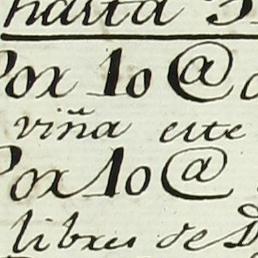 hasta 3
Por 10 @ d
viña este
Por 10 @
libres de D